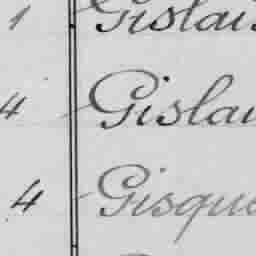 1 Gislai
4 Gislai
4 Gisque